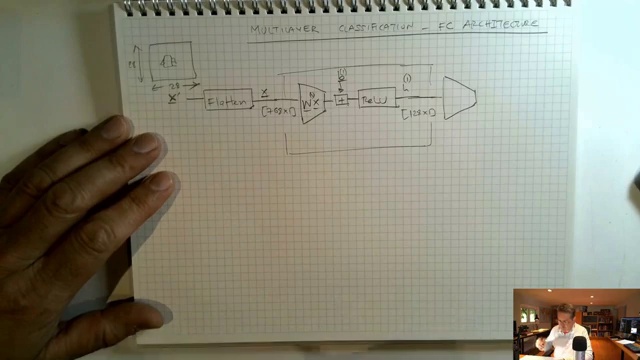 MULTILAYER CLASSIFICATION - FC ARCHITECTURE
28
28
x
Flatten
x
[768x1]
W x
(1)
b
+
ReLU
(1)
h
[128x1]